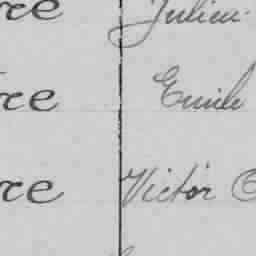 re Julien
re Emile
re Victor